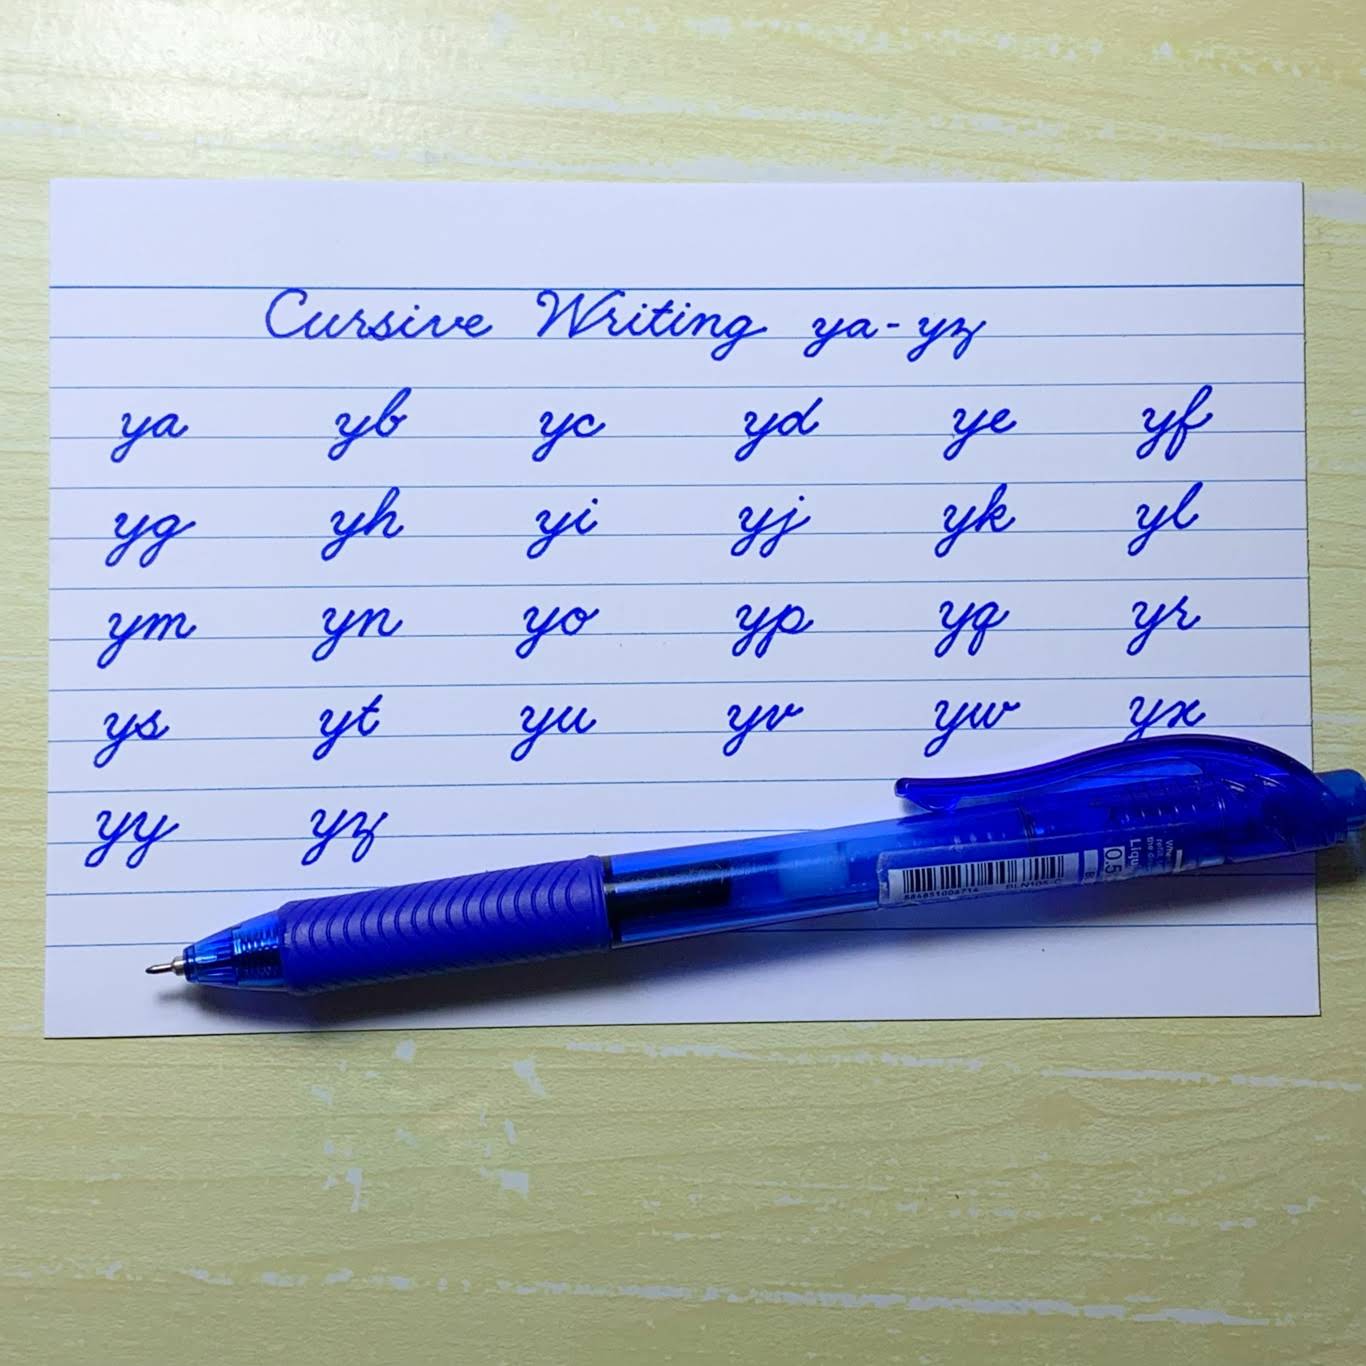 Cursive Writing ya-yz
ya yb yc yd ye yf
yg yh yi yj yk yl
ym yn yo yp yq yr
ys yt yu yv yw yx
yy yz
0.5
BLN105-C